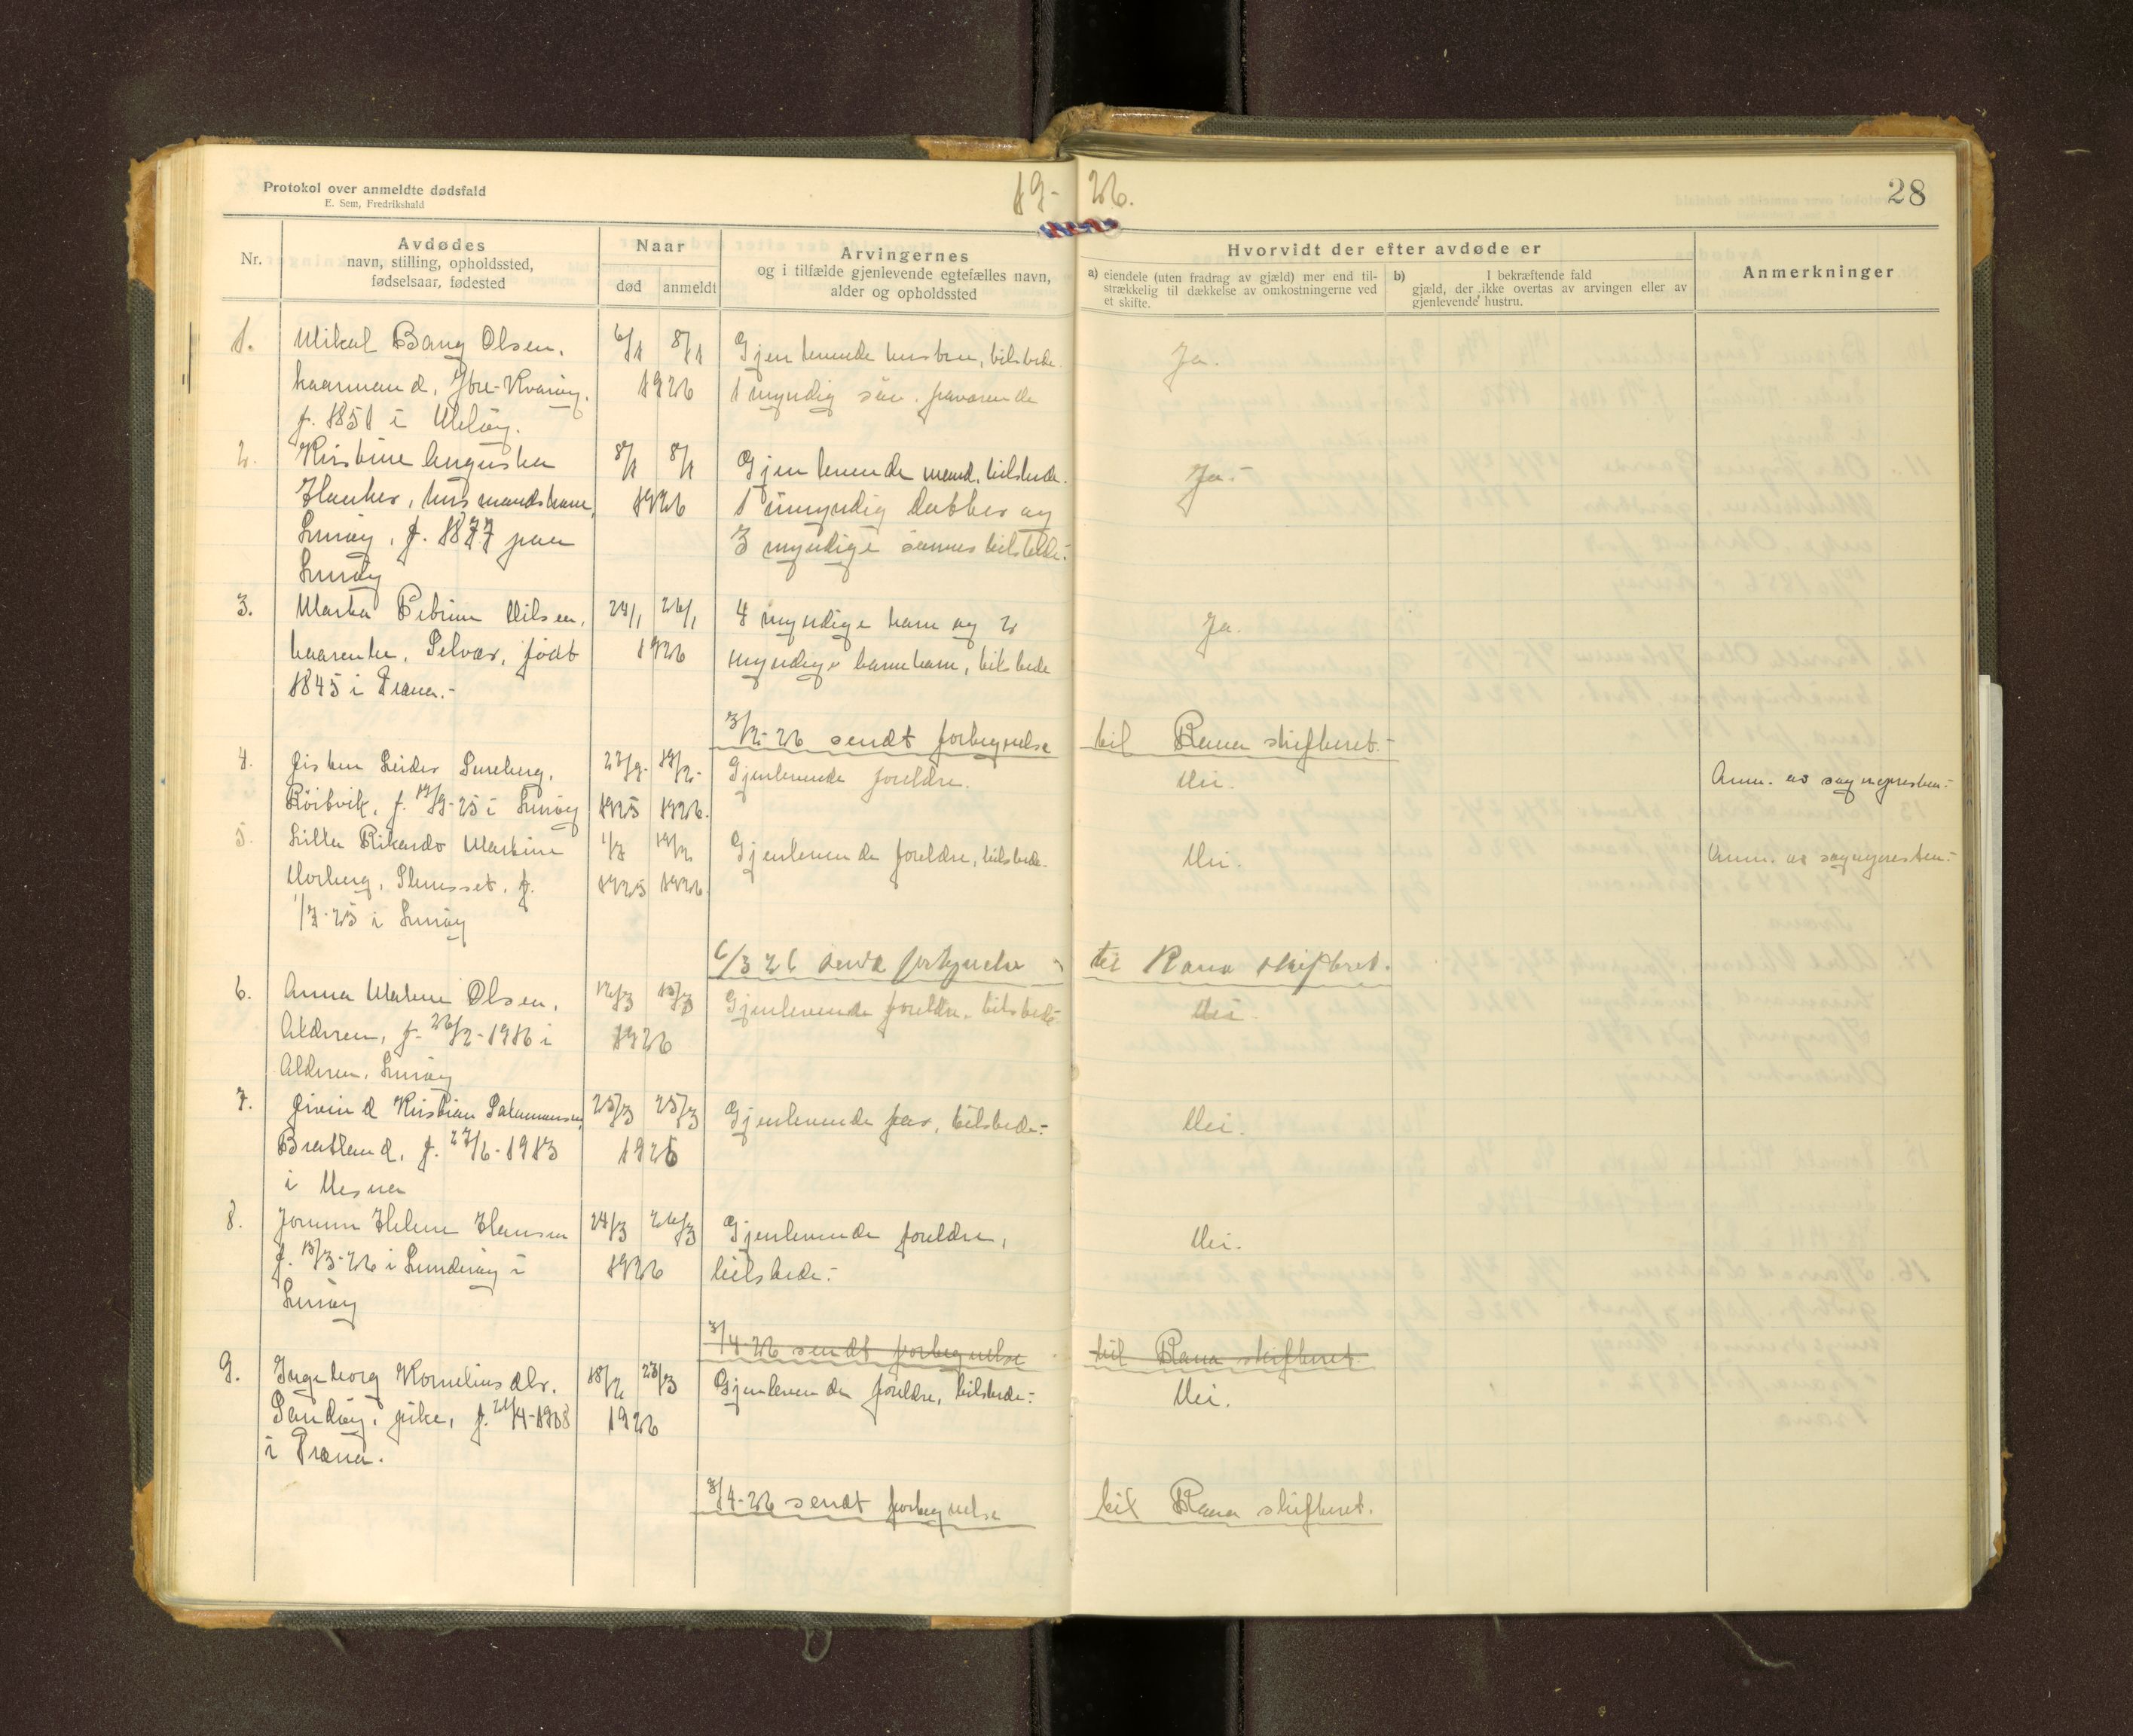 Protokol over anmeldte dødsfald
E. Sem, Fredrikshald
19-26.
28
Nr.
Avdødes
navn, stilling, opholdssted,
fødselsaar, fødested
Naar
død
anmeldt
Arvingernes
og i tilfælde gjenlevende egtefælles navn,
alder og opholdssted
Hvorvidt der efter avdøde er
a) eiendele (uten fradrag av gjæld) mer end til-
strækkelig til dækkelse av omkostningerne ved
et skifte.
b) I bekræftende fald
gjæld, der ikke overtas av arvingen eller av
gjenlevende hustru.
Anmerkninger
1. Mikal Bang Olsen, 6/1 8/1 Gjenlevende hustru, tilstede. Ja.
kaarmand, Ytre-Kvarøy, 1926 1 myndig søn. fraværende
f. 1851 i Meløy.
2. Kristine Augusta 8/1 8/1 Gjenlevende mand, tilstede. Ja.-
husmandskone, 1926 1 umyndig datter og
Lurøy, f. 1877 paa 3 myndige sønner tilstede.-
Lurøy
3. Marta Petrine Nilsen, 24/1 26/1 4 myndige barn og 2 Ja.
kaarenke, Selvær, født 1926 myndige barnebarn, tilstede
1845 i Træna.-
3/2-26 sendt fortegnelse til Rana skifteret.-
4. Leider Lureberg, 22/9- 19/2- Gjenlevende foreldre. Nei. Anm. av sognepresten.-
f. 19/9-25 i Lurøy 1925 1926.
5. Lilla Rikarda Martine 1/7 19/2 Gjenlevende foreldre, tilstede. Nei. Anm. av sognepresten.-
Norberg, f. 1925 1926
1/7-25 i Lurøy
6/3 26 sendt fortegnelse til Rana skifteret.
6. Anna Malene Olsen, 12/3 13/3 Gjenlevende foreldre. tilstede Nei.
Alderen, f. 26/2-1916 i 1926
Alderen, Lurøy
7. Eivind Kristian Salamonsen 23/3 25/3 Gjenlevende far, tilstede.- Nei.
Bratland, f. 27/6-1913 1926
i Nesna
8. Jorunn Helene Hansen 24/3 26/3 Gjenlevende foreldre, Nei.
f. 13/3-26 i Sundøy i 1926 tilstede.-
Lurøy
3/4-26 sendt fortegnelse til Rana skifteret.
9. Ingeborg Korneliusdtr. 18/2 23/3 Gjenlevende foreldre, tilstede.- Nei.
Sandøy, pike, f. 21/4-1908 1926
i Træna.
3/4-26 sendt fortegnelse til Rana skifteret.